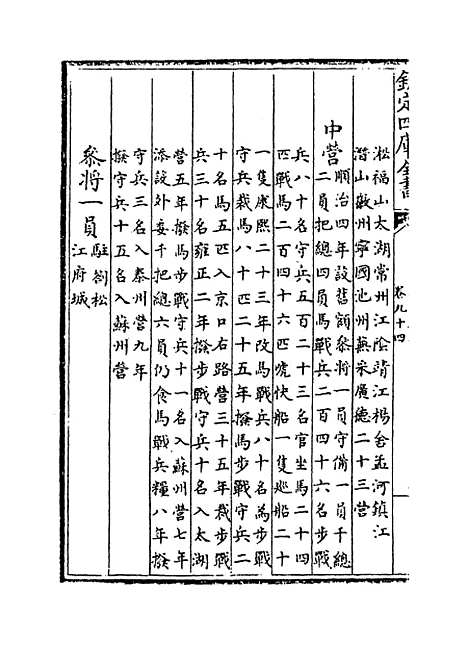 欽定四庫全書
卷九十四
淞福山太湖常州江陰靖江楊舍孟河鎮江
潛山徽州寧國池州蕪采廣德二十三營
中營
順治四年設舊額參將一員守備一員千總
二員把總四員馬戰兵二百四十六名步戰
兵八十名守兵五百二十三名官坐馬二十四
匹戰馬二百四十六匹唬快船一隻巡船二十
一隻康熙二十三年改馬戰兵八十名為步戰
守兵裁馬八十匹二十五年撥馬步戰守兵二
十名馬五匹入京口右路營三十五年裁步戰
兵三十名雍正二年撥步戰守兵十名入太湖
營五年撥馬步戰守兵十一名入蘇州營七年
添設外委千把總六員仍食馬戰兵糧八年撥
守兵三名入泰州營九年
撥守兵十五名入蘇州營
參將一員
駐劄松
江府城